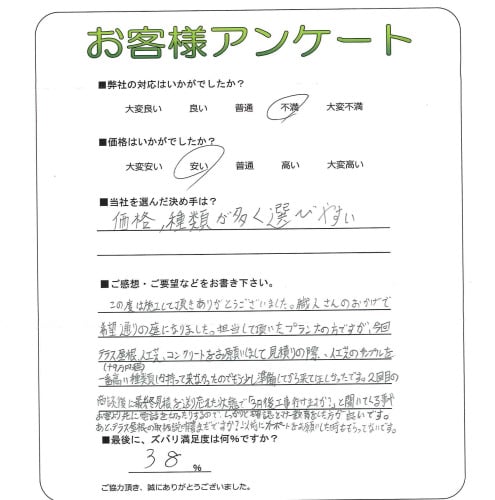 お客様アンケート
■弊社の対応はいかがでしたか?
大変良い 良い 普通 不満 大変不満
■価格はいかがでしたか?
大変安い 安い 普通 高い 大変高い
■当社を選んだ決め手は?
価格、種類が多く選びやすい
■ご感想・ご要望などをお書き下さい。
この度は施工して頂きありがとうございました。職人さんのおかげで
希望通りの庭になりました。担当して頂いたプランナーの方ですが、今回
テラス屋根、人工芝、コンクリートをお願いして見積りの際、人工芝のサンプルを
一番高い種類しか持って来なかったのでもう少し準備してから来てほしかったです。2回目の
商談後に最終見積を送り忘れた状態で「3月後工事付けますか?」と聞いてくる事や
しっかりと確認とマナー教育をした方が良いです。
あと、テラス屋根の
■最後に、ズバリ満足度は何%ですか?
38 %
ご協力頂き、誠にありがとうございました。